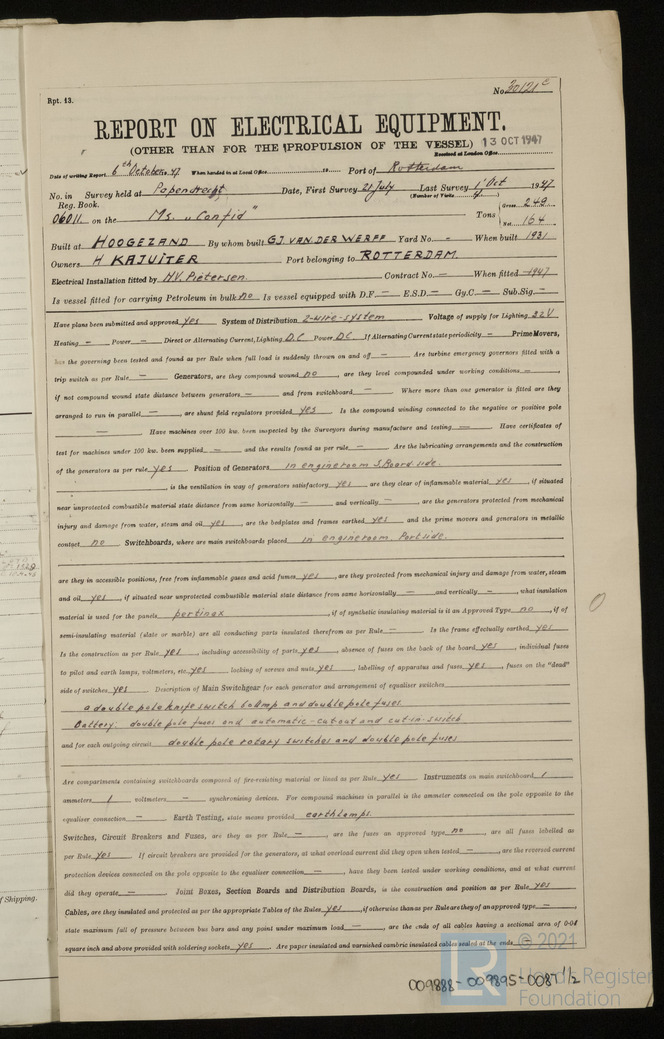 Rpt. 13.
No. 30121 E
REPORT ON ELECTRICAL EQUIPMENT.
(OTHER THAN FOR THE PROPULSION OF THE VESSEL)
13 OCT 1947
Received at London Office
Date of writing Report 6th October 1947 When handed in at Local Office 19 Port of Rotterdam
No. in Survey held at Papendrecht Date, First Survey 21 July Last Survey 1 Oct 1947
Reg. Book. (Number of Visits
06011 on the Ms. "Confid" Tons { Gross 249 Net 164
Built at HOOGEZAND By whom built G.J. VAN DER WERFF Yard No. - When built 1931
Owners H KAJUITER Port belonging to ROTTERDAM.
Electrical Installation fitted by H.V. Pietersen Contract No. - When fitted 1947
Is vessel fitted for carrying Petroleum in bulk no Is vessel equipped with D.F. - E.S.D. - Gy.C. - Sub.Sig. -
Have plans been submitted and approved yes System of Distribution 2-wire-system Voltage of supply for Lighting 32V
Heating - Power - Direct or Alternating Current, Lighting D.C Power D.C If Alternating Current state periodicity - Prime Movers,
has the governing been tested and found as per Rule when full load is suddenly thrown on and off - Are turbine emergency governors fitted with a
trip switch as per Rule - Generators, are they compound wound no, are they level compounded under working conditions -,
if not compound wound state distance between generators - and from switchboard - Where more than one generator is fitted are they
arranged to run in parallel -, are shunt field regulators provided yes Is the compound winding connected to the negative or positive pole
- Have machines over 100 kw. been inspected by the Surveyors during manufacture and testing - Have certificates of
test for machines under 100 kw. been supplied - and the results found as per rule - Are the lubricating arrangements and the construction
of the generators as per rule yes Position of Generators in engineroom S.Board side.
, is the ventilation in way of generators satisfactory yes are they clear of inflammable material yes, if situated
near unprotected combustible material state distance from same horizontally - and vertically -, are the generators protected from mechanical
injury and damage from water, steam and oil yes, are the bedplates and frames earthed yes and the prime movers and generators in metallic
contact no Switchboards, where are main switchboards placed in engineroom Portside.
are they in accessible positions, free from inflammable gases and acid fumes yes, are they protected from mechanical injury and damage from water, steam
and oil yes, if situated near unprotected combustible material state distance from same horizontally - and vertically -, what insulation
material is used for the panels pertinax, if of synthetic insulating material is it an Approved Type no, if of
semi-insulating material (slate or marble) are all conducting parts insulated therefrom as per Rule - Is the frame effectually earthed yes
Is the construction as per Rule yes, including accessibility of parts yes, absence of fuses on the back of the board yes, individual fuses
to pilot and earth lamps, voltmeters, etc. yes locking of screws and nuts yes, labelling of apparatus and fuses yes, fuses on the "dead"
side of switches yes Description of Main Switchgear for each generator and arrangement of equaliser switches
a double pole knife switch 60 amp and double pole fuses.
Battery: double pole fuses and automatic-cut-out and cut-in-switch
and for each outgoing circuit double pole rotary switches and double pole fuses
Are compartments containing switchboards composed of fire-resisting material or lined as per Rule yes Instruments on main switchboard 1
ammeters 1 voltmeters - synchronising devices. For compound machines in parallel is the ammeter connected on the pole opposite to the
equaliser connection - Earth Testing, state means provided earthlamps.
Switches, Circuit Breakers and Fuses, are they as per Rule -, are the fuses an approved type no, are all fuses labelled as
per Rule yes If circuit breakers are provided for the generators, at what overload current did they open when tested -, are the reversed current
protection devices connected on the pole opposite to the equaliser connection -, have they been tested under working conditions, and at what current
did they operate - Joint Boxes, Section Boards and Distribution Boards, is the construction and position as per Rule yes
Cables, are they insulated and protected as per the appropriate Tables of the Rules yes, if otherwise than as per Rule are they of an approved type -,
state maximum fall of pressure between bus bars and any point under maximum load -, are the ends of all cables having a sectional area of 0.04
square inch and above provided with soldering sockets yes. Are paper insulated and varnished cambric insulated cables sealed at the ends
of Shipping.
© 2021
LR Lloyd's Register
Foundation
009888-009895-0087 1/2